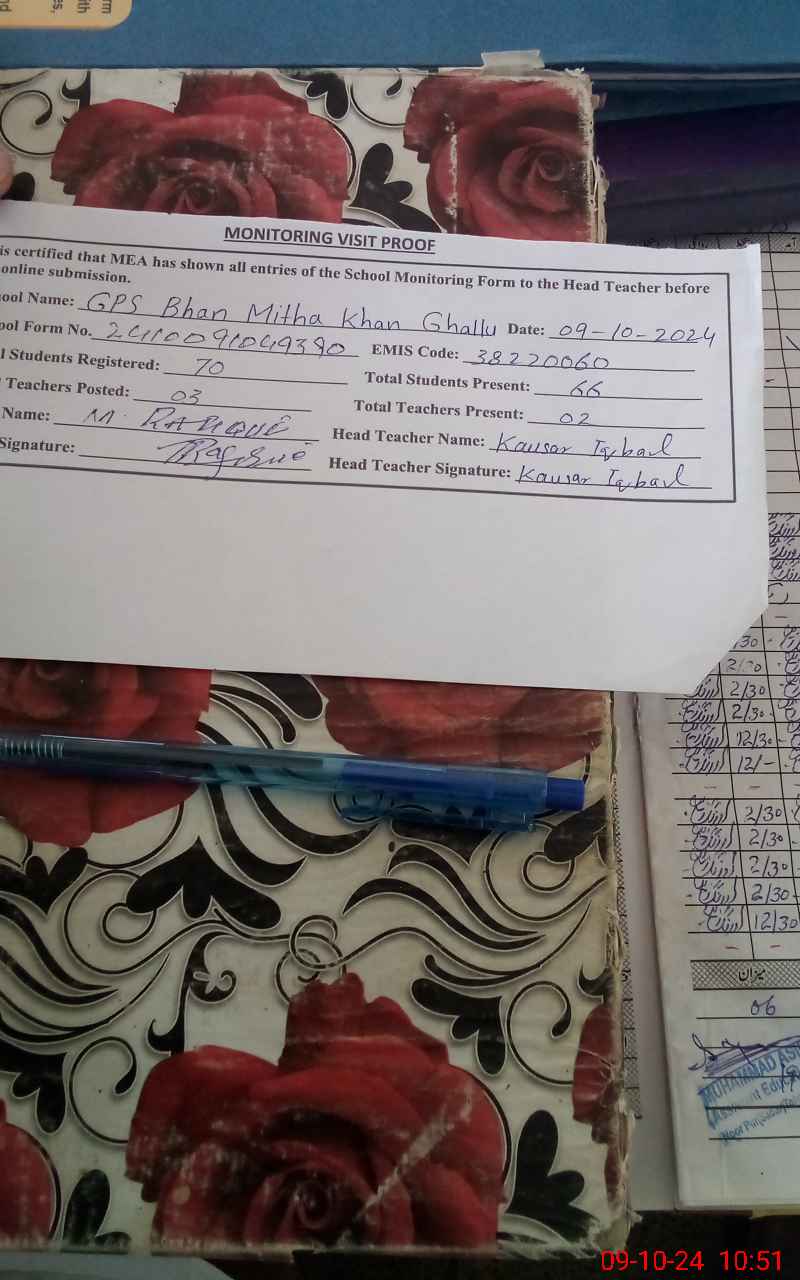 rm
ith
es,
nd
MONITORING VISIT PROOF
is certified that MEA has shown all entries of the School Monitoring Form to the Head Teacher before
online submission.
ool Name: GPS Bhan Mitha Khan Ghallu Date: 09-10-2024
ool Form No. EMIS Code: 38220060
l Students Registered: 70 Total Students Present: 66
Teachers Posted: 03 Total Teachers Present: 02
Name: M. Head Teacher Name: Kausar Iqbal
Signature: Head Teacher Signature: Kausar Iqbal
2/30
2/30
2/30
12/30
12/-
2/30
2/30
2/30
2/30
12/30
میزان
06
MUHAMMAD
09-10-24 10:51